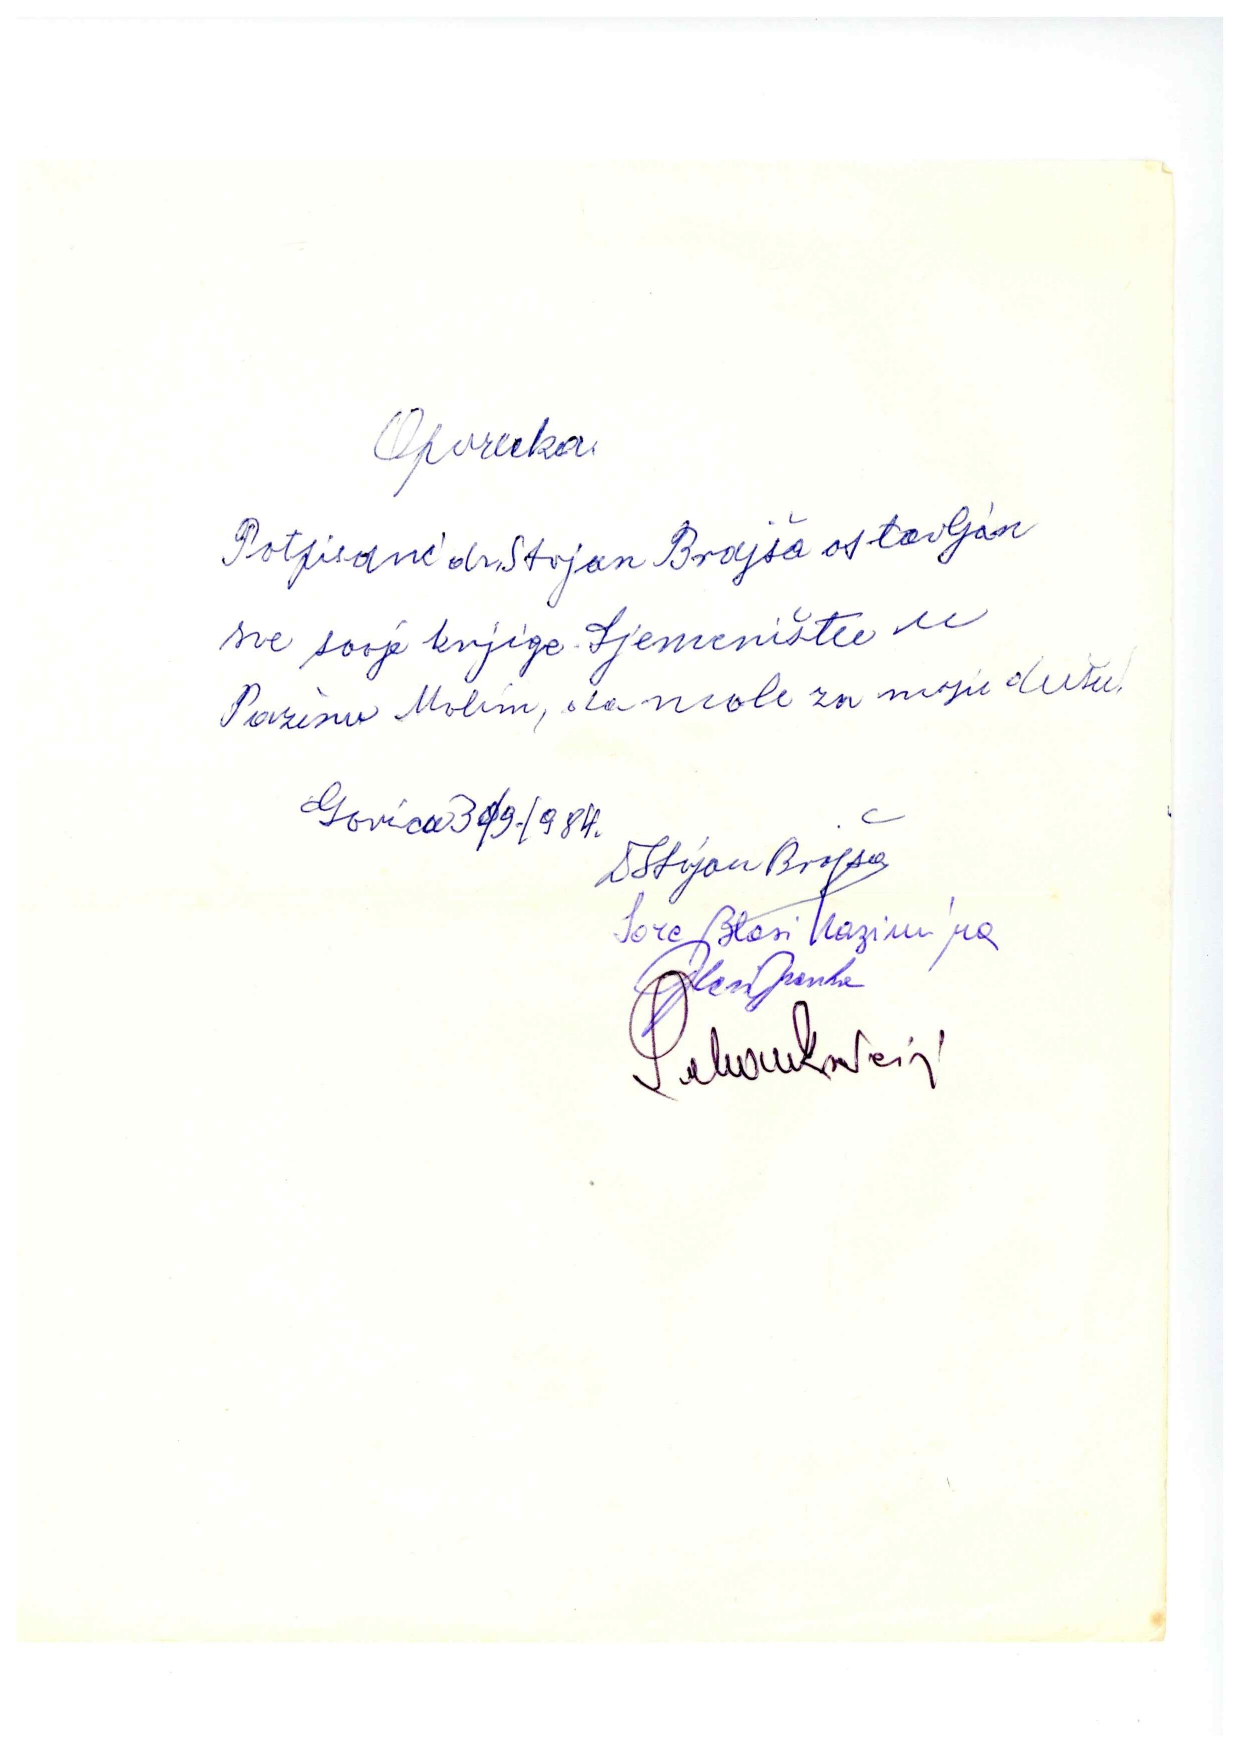 Oporuka.
Potpisani dr. Stojan Brajša ostavljam
sve svoje knjige Sjemeništu u
Pazinu Molim, da mole za moju dušu!
Gorica 3/9-1984.
Dr Stojan Brajša
Sore Blasi Kazimira